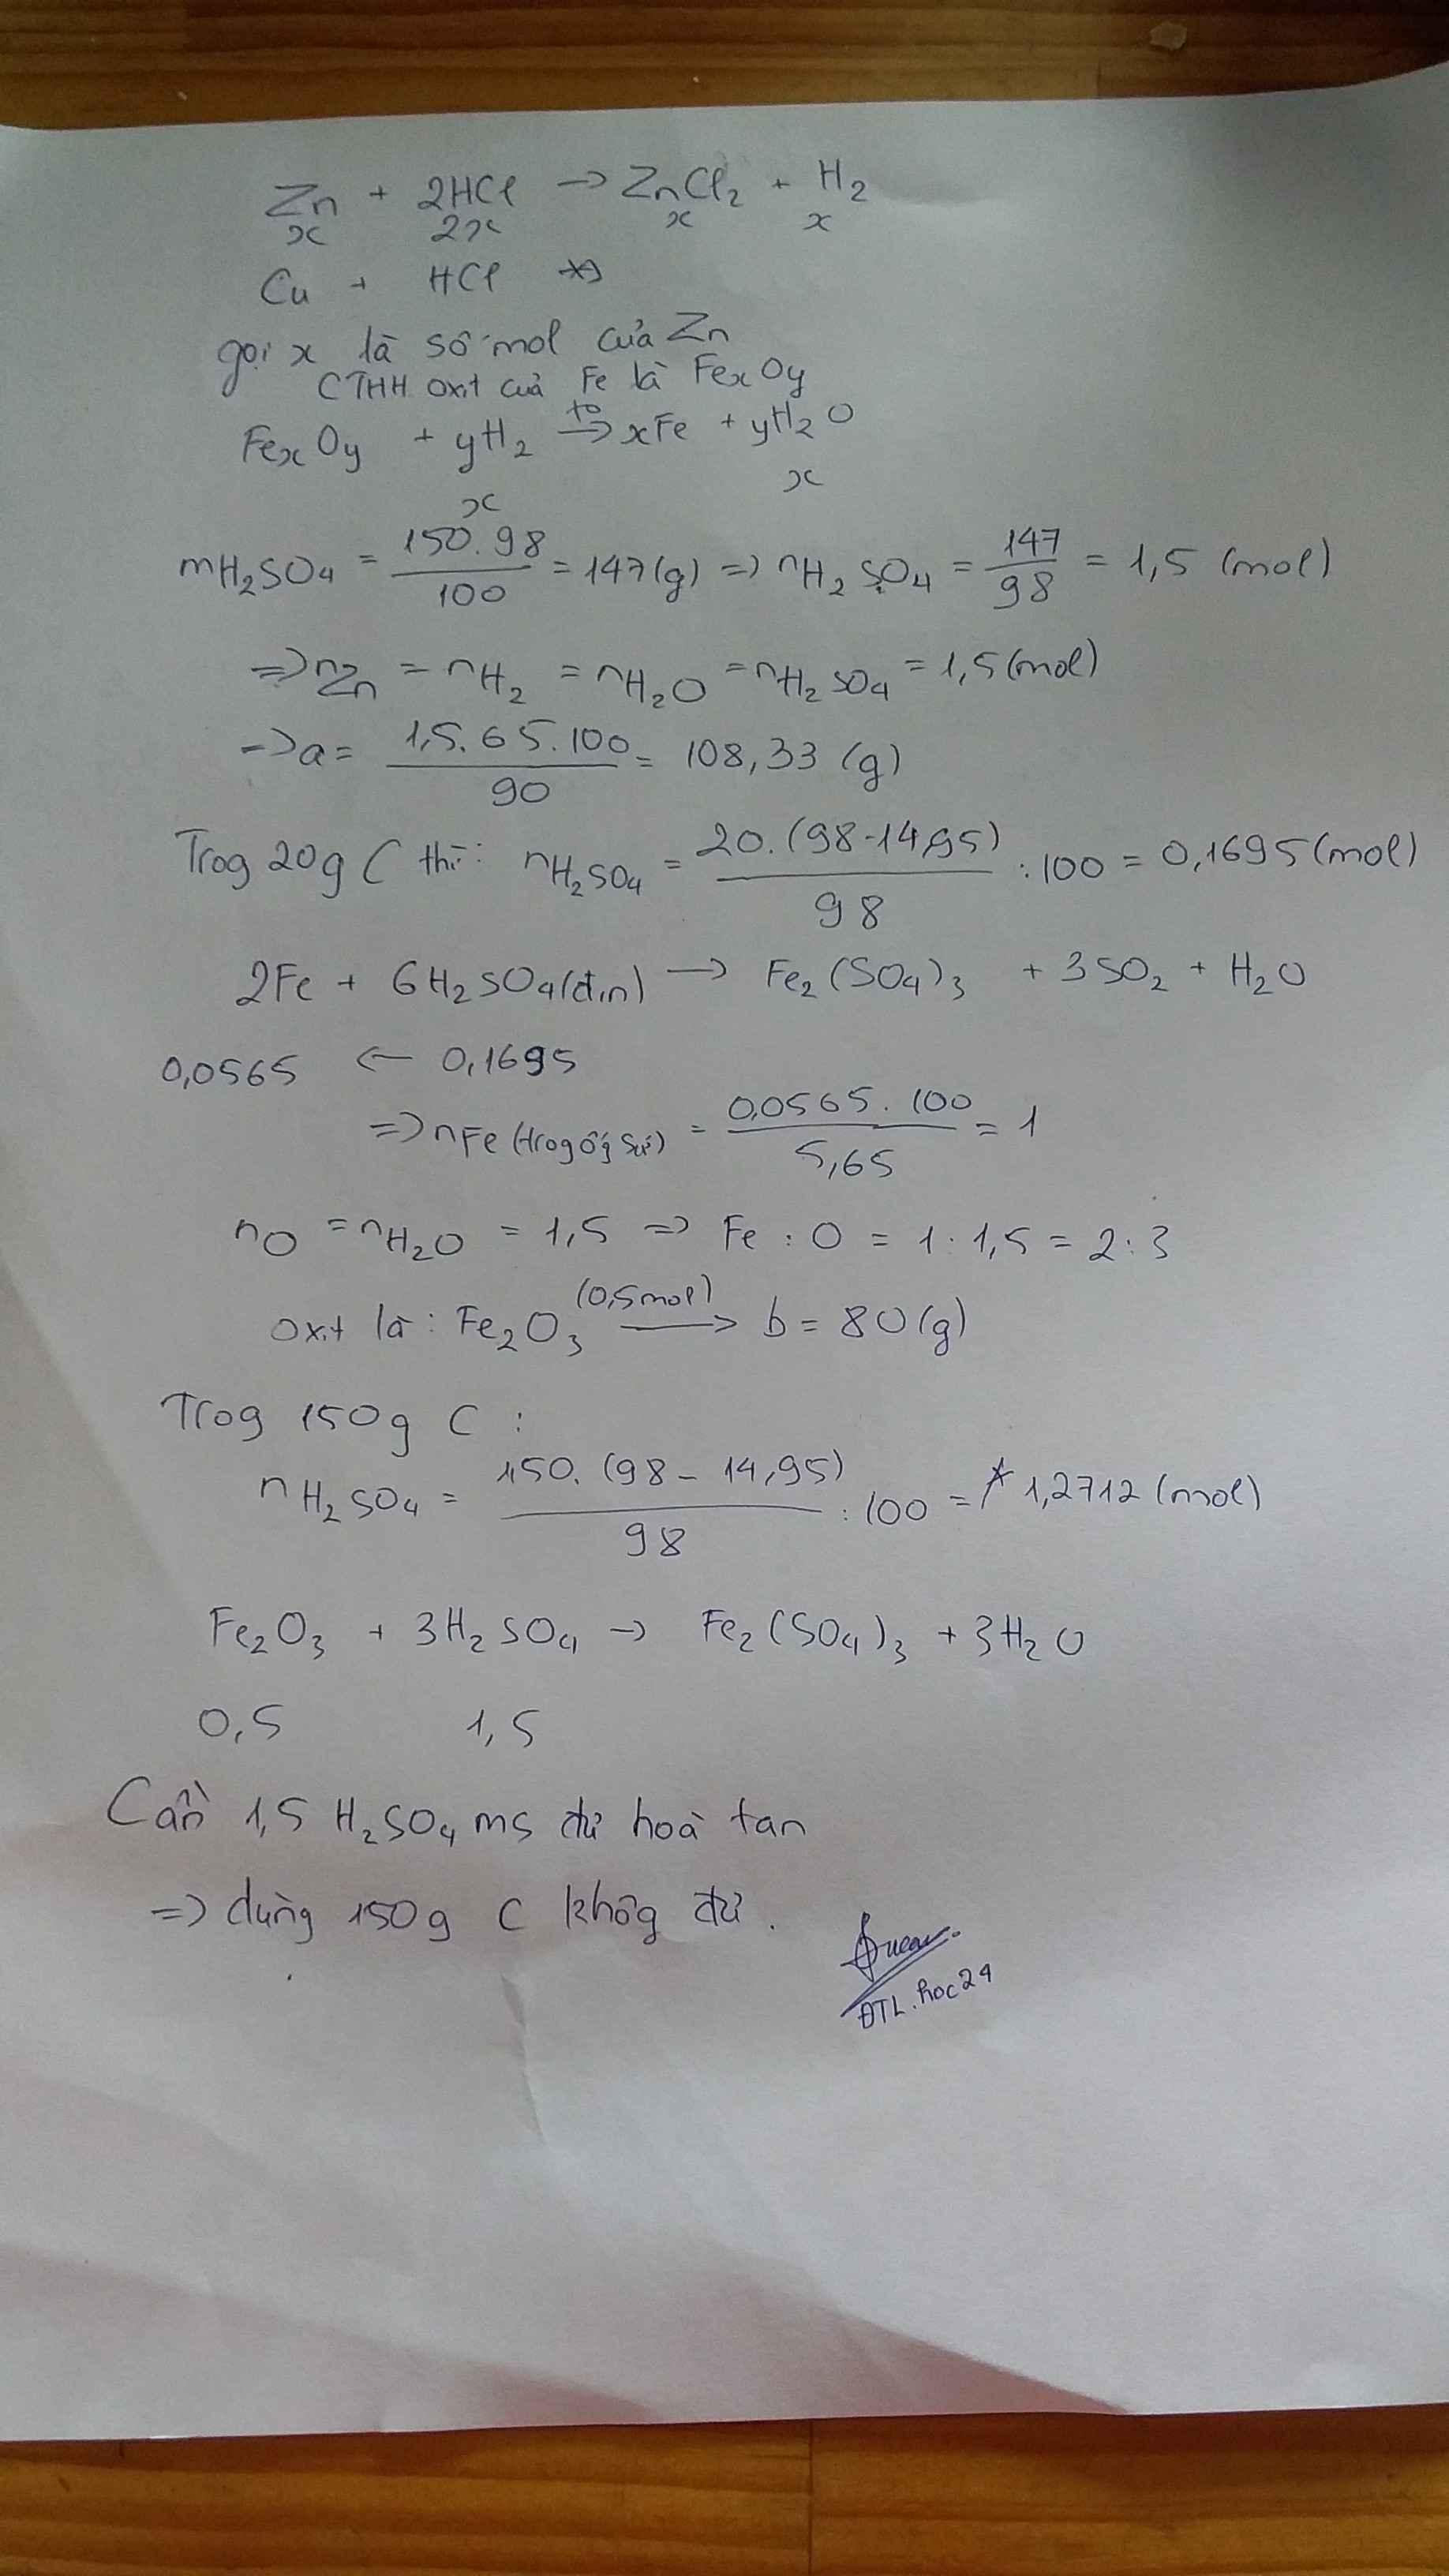 Zn + 2HCl -> ZnCl2 + H2
x 2x x x
Cu + HCl
gọi x là số mol của Zn
CTHH oxit của Fe là FexOy
FexOy + yH2 -t°-> xFe + yH2O
x x
mH2SO4 = 150.98/100 = 147(g) => nH2SO4 = 147/98 = 1,5 (mol)
=> nZn = nH2 = nH2O = nH2SO4 = 1,5(mol)
-> a = 1,5.65.100/90 = 108,33 (g)
Trog 20g C thì: nH2SO4 = 20.(98-14,95)/98 : 100 = 0,1695(mol)
2Fe + 6H2SO4(đ,n) -> Fe2(SO4)3 + 3SO2 + H2O
0,0565 <- 0,1695
=> nFe (trog ốg sứ) = 0,0565.100/5,65 = 1
nO = nH2O = 1,5 => Fe : O = 1:1,5 = 2:3
oxit là: Fe2O3 (0,5mol) -> b = 80(g)
Trog 150g C :
nH2SO4 = 150.(98-14,95)/98 : 100 = 1,2712 (mol)
Fe2O3 + 3H2SO4 -> Fe2(SO4)3 + 3H2O
0,5 1,5
Cần 1,5 H2SO4 ms đủ hoà tan
=> dùng 150g C khôg đủ.
ĐTL.hoc24